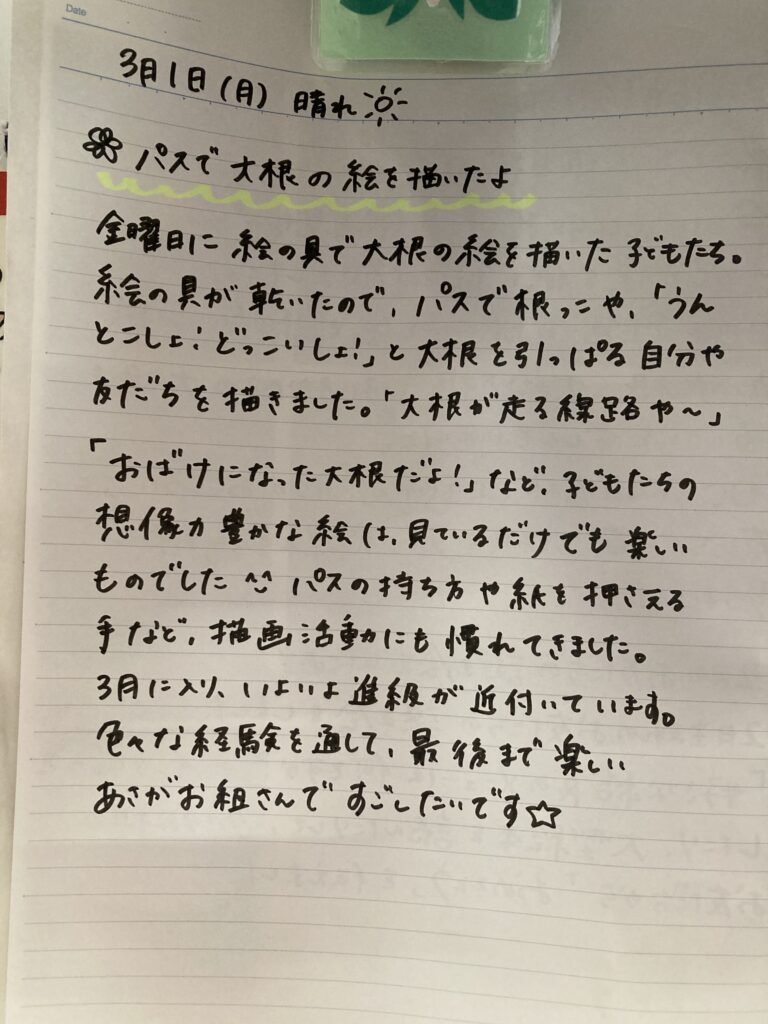 Date
3月1日(月) 晴れ
パスで大根の絵を描いたよ
金曜日に絵の具で大根の絵を描いた子どもたち。
絵の具が乾いたので、パスで根っこや、「うん
とこしょ!どっこいしょ!」と大根を引っぱる自分や
友だちを描きました。「大根が走る線路や～」
「おばけになった大根だよ!」など、子どもたちの
想像力豊かな絵は、見ているだけでも楽しい
ものでした^^ パスの持ち方や紙を押さえる
手など、描画活動にも慣れてきました。
3月に入り、いよいよ進級が近付いています。
色々な経験を通して、最後まで楽しい
あさがお組さんですごしたいです☆